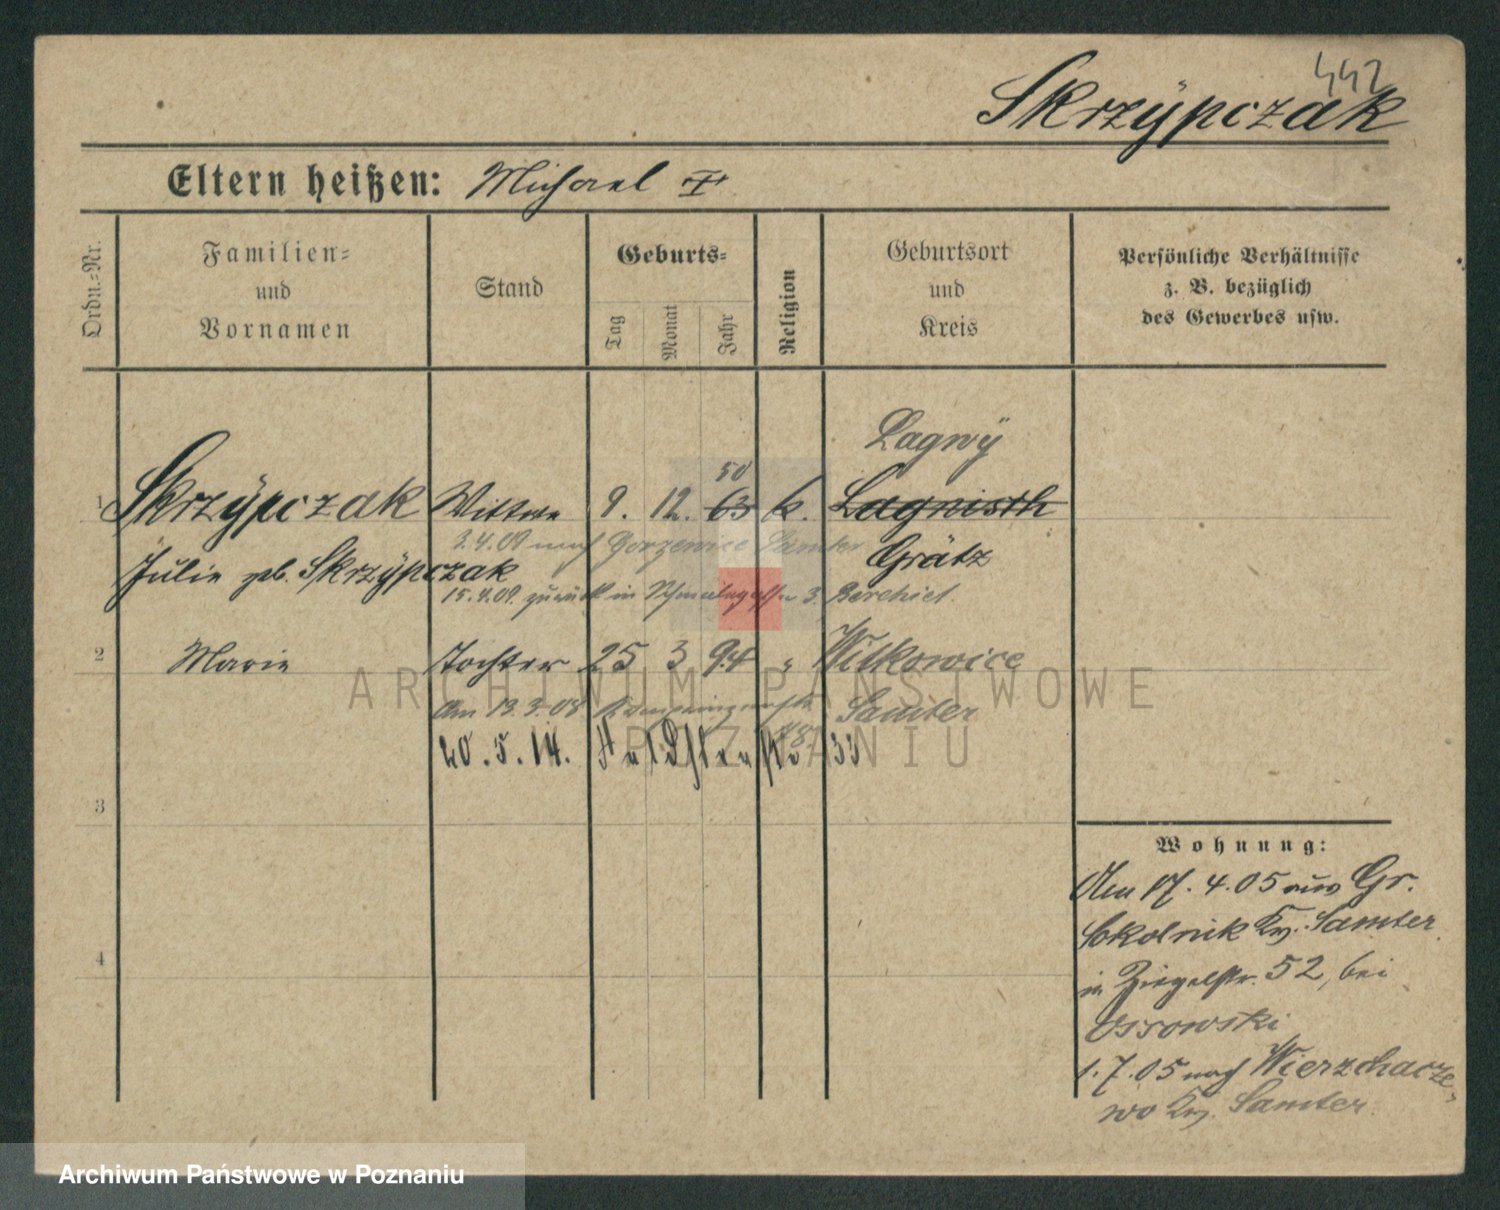 442
Skrzÿpczak
Eltern heißen: Michael †
Ordn.-Nr.
Familien-
und
Vornamen
Stand
Geburts-
Tag
Monat
Jahr
Religion
Geburtsort
und
Kreis
Persönliche Verhältnisse
z. B. bezüglich
des Gewerbes usw.
Lagwÿ
50
1 Skrzÿpczak Wittwe 9. 12. 63 k. Lagnisth
3.4.09 nach Gorzewice Samter Grätz
Julie geb. Skrzÿpczak
15.4.09. zurück in 3.
2 Marie Tochter 25 3 94 " Wilkowice
Am 13.3.08 Samter
20.5.14. 33
3
4
Wohnung:
Am 17.4.05 aus Gr.
Sokolnik Kr. Samter
in Ziegelstr. 52, bei
Ossowski
1.7.05 nach Wierzchacze-
wo Kr. Samter
ARCHIWUM PAŃSTWOWE
W POZNANIU
Archiwum Państwowe w Poznaniu